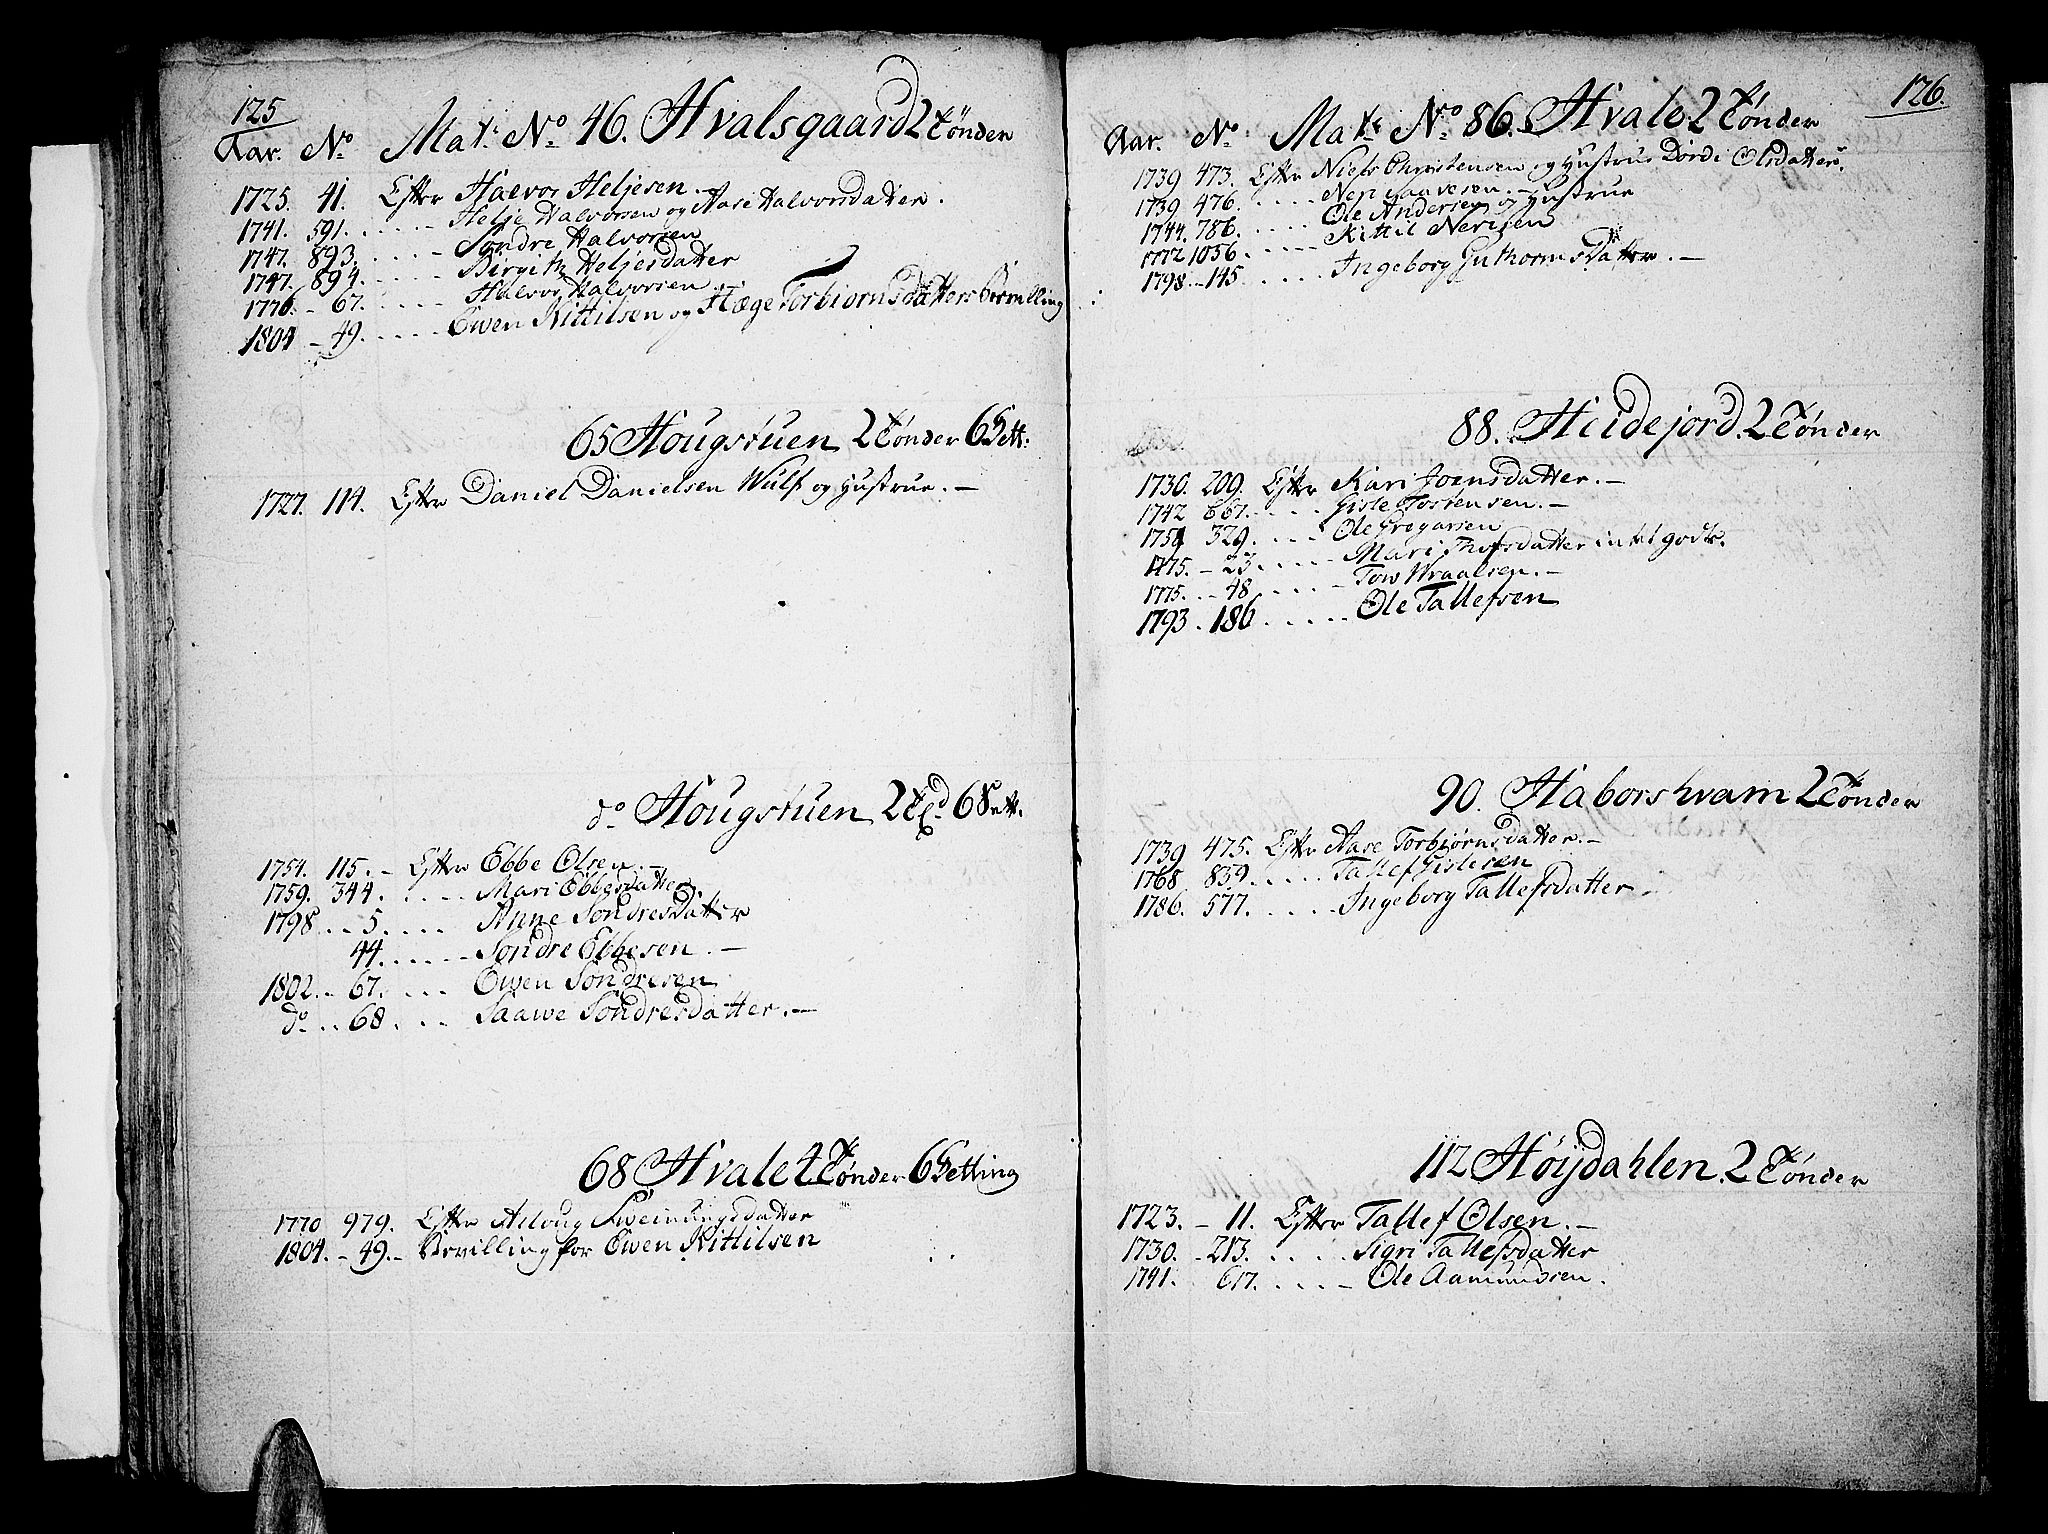 125
Aar. No Mat: No 46. Hvalsgaard 2 Tønder
1725. 41. Efter Halvor Heljesen.
1741. 591. Helje Halvorsen og Aase Halvorsdatter.
1747. 893. Sondre Halvorsen
1747. 894. Birgith Heljesdatter
1776. - 67. Halvor Halvorsen
1804 - 49. Ewen Kittilsen og Hæge Torbiørnsdatters bevilling
65 Hougstuen 2 Tønder 6 Sett:
1727. 114. Efter Daniel Danielsen Wulf og Hustrue. -
do Hougstuen 2 Td 6 Sett.
1754. 115. - Efter Ebbe Olsen. -
1759. 344. Mari Ebbesdatter.
1798 .. 5. Anne Sondresdatter
44. Sondre Ebbesen. -
1802. - 67. Ewen Sondresen
do .. 68. Saawe Sondresdatter. -
68 Hvale 4 Tønder 6 Setting
1770 979. Efter Asloug Sweinungsdatter
1804. - 49. - Bevilling for Ewen Kittilsen
126.
Aar. No Mat: No 86. Hvale. 2 Tønder
1739 473. Efter Niels Christensen og Hustrue Dordi Olsdatter.
1739 476. Neri Saavesen. -
1744. 786. Ole Andersen og Hustrue
1772 1056. Kittil Nerisen
1798. - 145. Ingeborg Guthormsdatter. -
88. Heidejord. 2 Tønder
1730. 209. Efter Kari Joensdatter. -
1742 667. Gisle Tostensen. -
1759 329. Ole Gregarsen
1775. - 23. Mari Thofsdatter intet godts.
1775. - 48 Tow Wraalsen. -
1793. 186. Ole Tallefsen
90. Haborshvam 2 Tønder
1739 475. Efter Aase Torbjørnsdatter. -
1768 839. Tallef Gislesen
1786. 577. Ingeborg Tallefsdatter -
112 Høijdahlen. 2 Tønder
1723. - 11. Efter Tallef Olsen. -
1730. - 213. Sigri Tallefsdatter
1741. 617. - Ole Aamundsen.